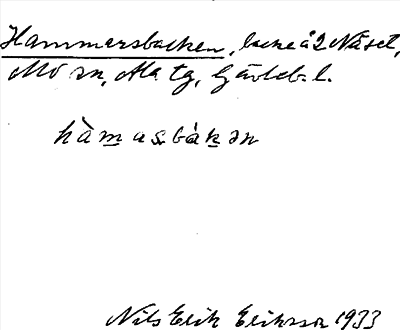 Hammarsbacken, backe å 2 Näset,
Mo sn, Ala tg, Gävleb. l.
hàmasbàkən
Nils Erik Eriksson 1933